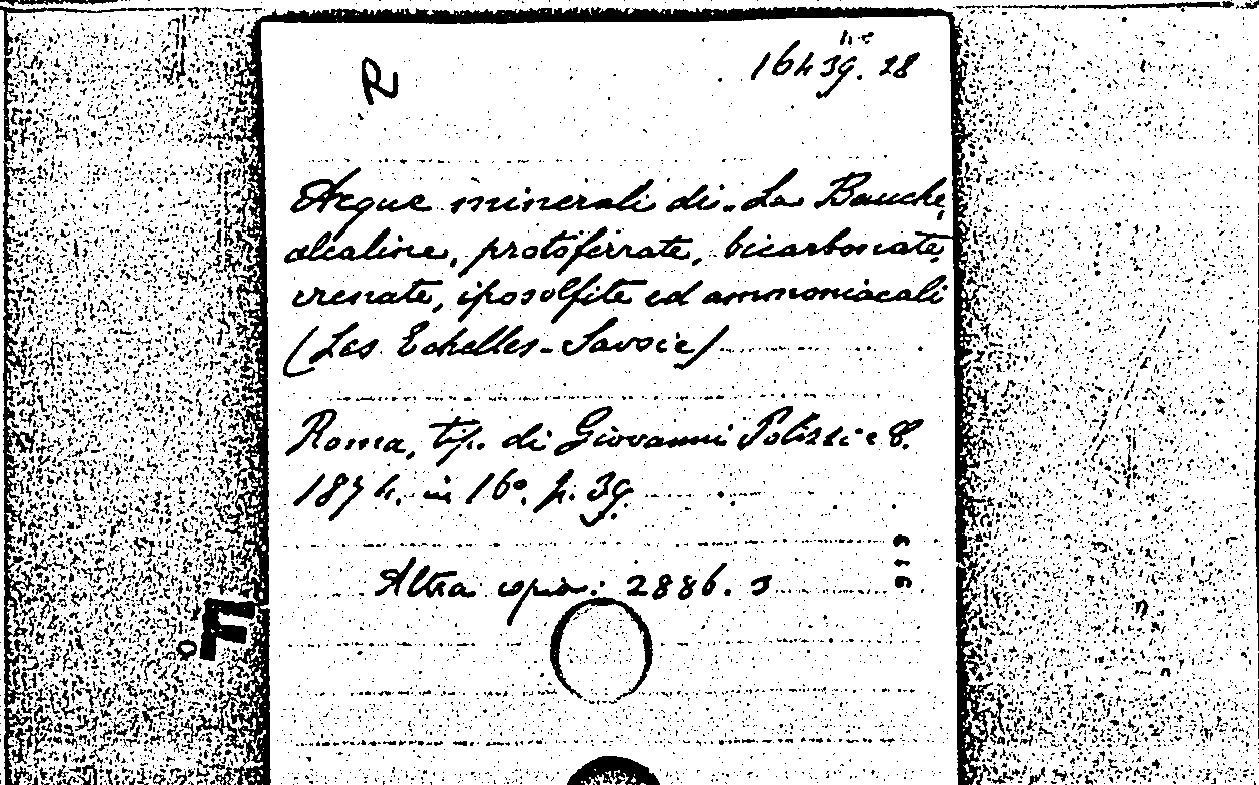 R
16439.28
Acque minerali di La Bauche,
alcaline, protoferrate, bicarbonate,
crenate, iposolfite ed ammoniacali
(Les Echelles-Savoie)
Roma, tip. di Giovanni Polizzi e C.
1874. in 16°. p. 39.
Altra copia: 2886.3